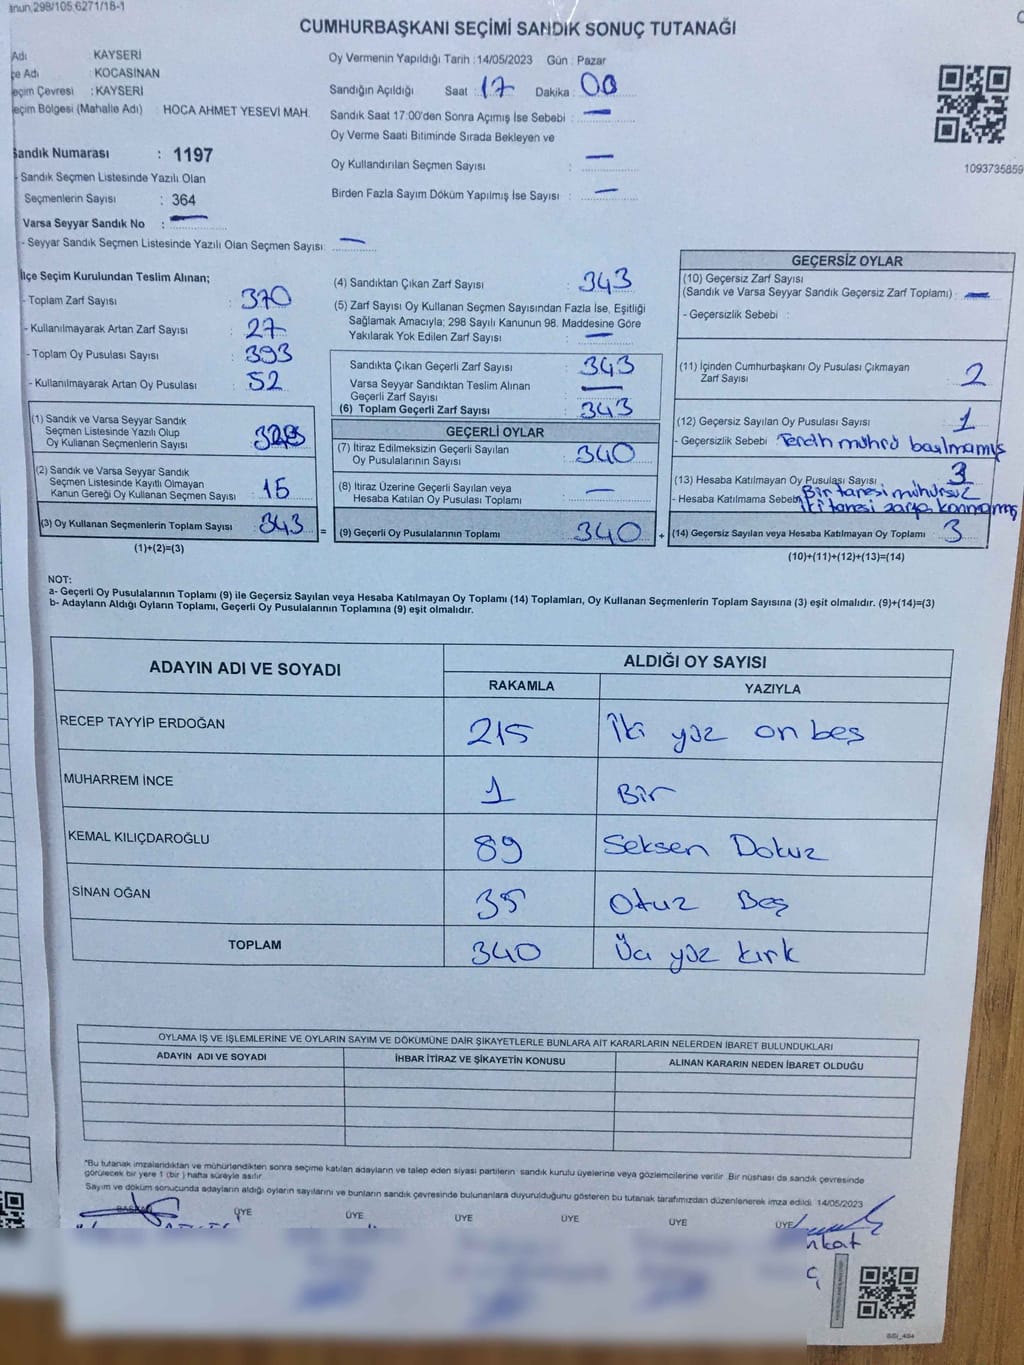 anun:298/105;6271/18-1
CUMHURBAŞKANI SEÇİMİ SANDIK SONUÇ TUTANAĞI
Adı KAYSERİ
çe Adı : KOCASİNAN
eçim Çevresi : KAYSERİ
eçim Bölgesi (Mahalle Adı) : HOCA AHMET YESEVİ MAH.
Sandık Numarası : 1197
- Sandık Seçmen Listesinde Yazılı Olan
Seçmenlerin Sayısı : 364
Varsa Seyyar Sandık No : —
- Seyyar Sandık Seçmen Listesinde Yazılı Olan Seçmen Sayısı: —
Oy Vermenin Yapıldığı Tarih : 14/05/2023 Gün : Pazar
Sandığın Açıldığı Saat : 17 Dakika : 00
Sandık Saat 17:00'den Sonra Açımış İse Sebebi : —
Oy Verme Saati Bitiminde Sırada Bekleyen ve
Oy Kullandırılan Seçmen Sayısı : —
Birden Fazla Sayım Döküm Yapılmış İse Sayısı : —
1093735859
İlçe Seçim Kurulundan Teslim Alınan;
- Toplam Zarf Sayısı : 370
- Kullanılmayarak Artan Zarf Sayısı : 27
- Toplam Oy Pusulası Sayısı : 393
- Kullanılmayarak Artan Oy Pusulası : 52
(1) Sandık ve Varsa Seyyar Sandık
Seçmen Listesinde Yazılı Olup
Oy Kullanan Seçmenlerin Sayısı
(2) Sandık ve Varsa Seyyar Sandık
Seçmen Listesinde Kayıtlı Olmayan
Kanun Gereği Oy Kullanan Seçmen Sayısı : 15
(3) Oy Kullanan Seçmenlerin Toplam Sayısı : 343 =
(1)+(2)=(3)
(4) Sandıktan Çıkan Zarf Sayısı : 343
(5) Zarf Sayısı Oy Kullanan Seçmen Sayısından Fazla İse, Eşitliği
Sağlamak Amacıyla; 298 Sayılı Kanunun 98. Maddesine Göre
Yakılarak Yok Edilen Zarf Sayısı : —
Sandıkta Çıkan Geçerli Zarf Sayısı : 343
Varsa Seyyar Sandıktan Teslim Alınan
Geçerli Zarf Sayısı : —
(6) Toplam Geçerli Zarf Sayısı : 343
GEÇERLİ OYLAR
(7) İtiraz Edilmeksizin Geçerli Sayılan
Oy Pusulalarının Sayısı : 340
(8) İtiraz Üzerine Geçerli Sayılan veya
Hesaba Katılan Oy Pusulası Toplamı : —
(9) Geçerli Oy Pusulalarının Toplamı : 340 +
GEÇERSİZ OYLAR
(10) Geçersiz Zarf Sayısı
(Sandık ve Varsa Seyyar Sandık Geçersiz Zarf Toplamı) : —
- Geçersizlik Sebebi :
(11) İçinden Cumhurbaşkanı Oy Pusulası Çıkmayan
Zarf Sayısı : 2
(12) Geçersiz Sayılan Oy Pusulası Sayısı : 1
- Geçersizlik Sebebi Tercih mührü basılmamış
(13) Hesaba Katılmayan Oy Pusulası Sayısı : 3
- Hesaba Katılmama Sebebi Bir tanesi mühürsüz
iki tanesi zarfa konmamış
(14) Geçersiz Sayılan veya Hesaba Katılmayan Oy Toplamı 3
(10)+(11)+(12)+(13)=(14)
NOT:
a- Geçerli Oy Pusulalarının Toplamı (9) ile Geçersiz Sayılan veya Hesaba Katılmayan Oy Toplamı (14) Toplamları, Oy Kullanan Seçmenlerin Toplam Sayısına (3) eşit olmalıdır. (9)+(14)=(3)
b- Adayların Aldığı Oyların Toplamı, Geçerli Oy Pusulalarının Toplamına (9) eşit olmalıdır.
ADAYIN ADI VE SOYADI ALDIĞI OY SAYISI
RAKAMLA YAZIYLA
RECEP TAYYİP ERDOĞAN 215 İki yüz on beş
MUHARREM İNCE 1 Bir
KEMAL KILIÇDAROĞLU 89 Seksen Dokuz
SİNAN OĞAN 35 Otuz Beş
TOPLAM 340 Üç yüz kırk
OYLAMA İŞ VE İŞLEMLERİNE VE OYLARIN SAYIM VE DÖKÜMÜNE DAİR ŞİKAYETLERLE BUNLARA AİT KARARLARIN NELERDEN İBARET BULUNDUKLARI
ADAYIN ADI VE SOYADI İHBAR İTİRAZ VE ŞİKAYETİN KONUSU ALINAN KARARIN NEDEN İBARET OLDUĞU
"Bu tutanak imzalandıktan ve mühürlendikten sonra seçime katılan adayların ve talep eden siyasi partilerin sandık kurulu üyelerine veya gözlemcilerine verilir. Bir nüshası da sandık çevresinde
görülecek bir yere 1 (bir ) hafta süreyle asılır.
Sayım ve döküm sonucunda adayların aldığı oyların sayılarını ve bunların sandık çevresinde bulunanlara duyurulduğunu gösteren bu tutanak tarafımızdan düzenlenerek imza edildi. 14/05/2023
BAŞKAN ÜYE ÜYE ÜYE ÜYE ÜYE ÜYE